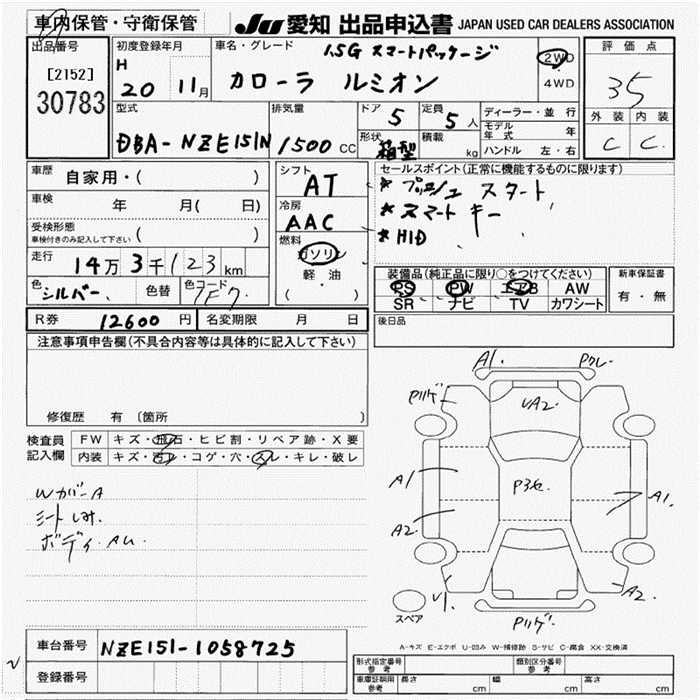 車内保管・守衛保管
JU 愛知 出品申込書 JAPAN USED CAR DEALERS ASSOCIATION
出品番号
[2152]
30783
初度登録年月
H 20 11月
車名・グレード
1.5G スマートパッケージ
カローラ ルミオン
2WD
4WD
評価点
35
外装 内装
C C
型式
DBA-NZE151N
排気量
1500 CC
ドア 5
定員 5人
形状 箱型
積載 kg
ディーラー・並行
モデル年式 年
ハンドル 左・右
車歴 自家用・( )
車検 年 月( 日)
受検形態 ( )
車検付きのみ記入して下さい
走行 14万3千123km
色 シルバー 色替 色コード 1F7
シフト
AT
冷房
AAC
燃料
ガソリン
軽・油
( )
セールスポイント(正常に機能するものに限ります)
* プッシュ スタート
* スマート キー
* HID
装備品(純正品に限り○をつけてください)
PS PW エアB AW
SR ナビ TV カワシート
新車保証書
有・無
R券 12600円 名変期限 月 日
後日品
注意事項申告欄(不具合内容等は具体的に記入して下さい)
修復歴 有〔箇所 〕
検査員記入欄
FW キズ・飛石・ヒビ割・リペア跡・X要
内装 キズ・汚レ・コゲ・穴・スレ・キレ・破レ
WカバーA
シートしみ.
ボディ.AU.
A1.
Pクレ.
Pリゲ
UA2.
A1
P3セ
A1.
A2.
U1.
A2.
Pリゲ.
スペア
A-キズ E-エクボ U-凹み W-補修跡 S-サビ C-腐食 XX-交換済
車台番号 NZE151-1058725
登録番号
形式指定番号 参考
類別区分番号 参考
車庫証明用 参考 長さ cm 幅 cm 高さ cm